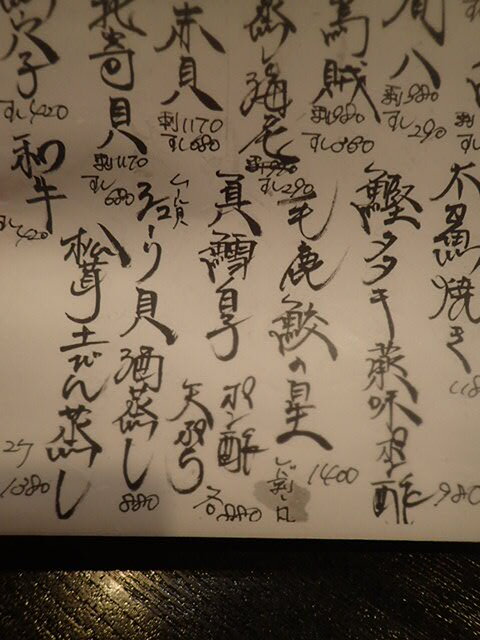 間八
刺980
すし290
烏賊
刺980
すし360
海老
すし290
赤貝
刺1170
すし680
北寄貝
刺1170
すし680
穴子
すし420
和牛
すし420
焼き
鰹タタキ薬味ポン酢
980
毛鹿鮫の星
レバ刺し風
1400
真鱈白子
ポン酢
天ぷら
各880
貝酒蒸し
880
松茸土びん蒸し
1380